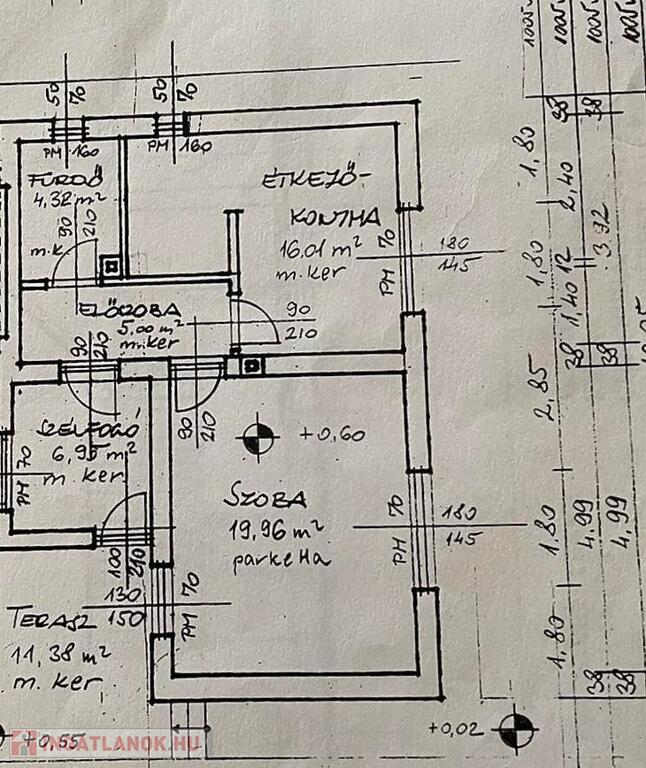 50
70
PM 160
50
70
PM 160
FÜRDŐ
4,32 m²
90
210
m.k
ÉTKEZŐ-
KONYHA
16.01 m²
m.ker
PM 70
180
145
ELŐSZOBA
5,00 m²
m.ker
90
210
90
210
90
210
SZÉLFOGÓ
6,95 m²
m.ker
PM 70
+0,60
SZOBA
19,96 m²
parketta
PM 70
180
145
100
210
130
150
PM 70
TERASZ
11,38 m²
m.ker
+0,55
+0,02
INGATLANOK.HU
1,80
1,80
2,85
1,80
1,80
38
2,40
12
1,40
38
4,99
38
38
3,92
38
4,99
38